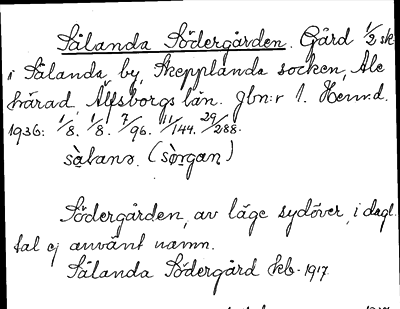 Sålanda Södergården. Gård 1/2 sk
i Sålanda by, Skepplanda socken, Ale
härad, Älfsborgs län. Jbn:r 1. Hemv.d.
1936: 1/8. 1/8. 7/96. 11/144. 29/288.
sàlana. (sòrgan)
Södergården, av läge sydöver, i dagl.
tal ej använt namn.
Sålanda Södergård kb. 1917.